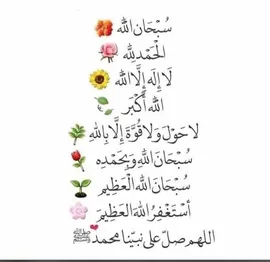 سُبْحَانَ اللّٰه
الْحَمْدُ لِلّٰه
لَا إِلٰهَ إِلَّا اللّٰه
اللّٰهُ أَكْبَر
لَا حَوْلَ وَلَا قُوَّةَ إِلَّا بِاللّٰهِ
سُبْحَانَ اللّٰهِ وَبِحَمْدِهِ
سُبْحَانَ اللّٰهِ الْعَظِيمِ
أَسْتَغْفِرُ اللّٰهَ الْعَظِيمَ
اللهم صلّ على نبيّنا محمد ﷺ